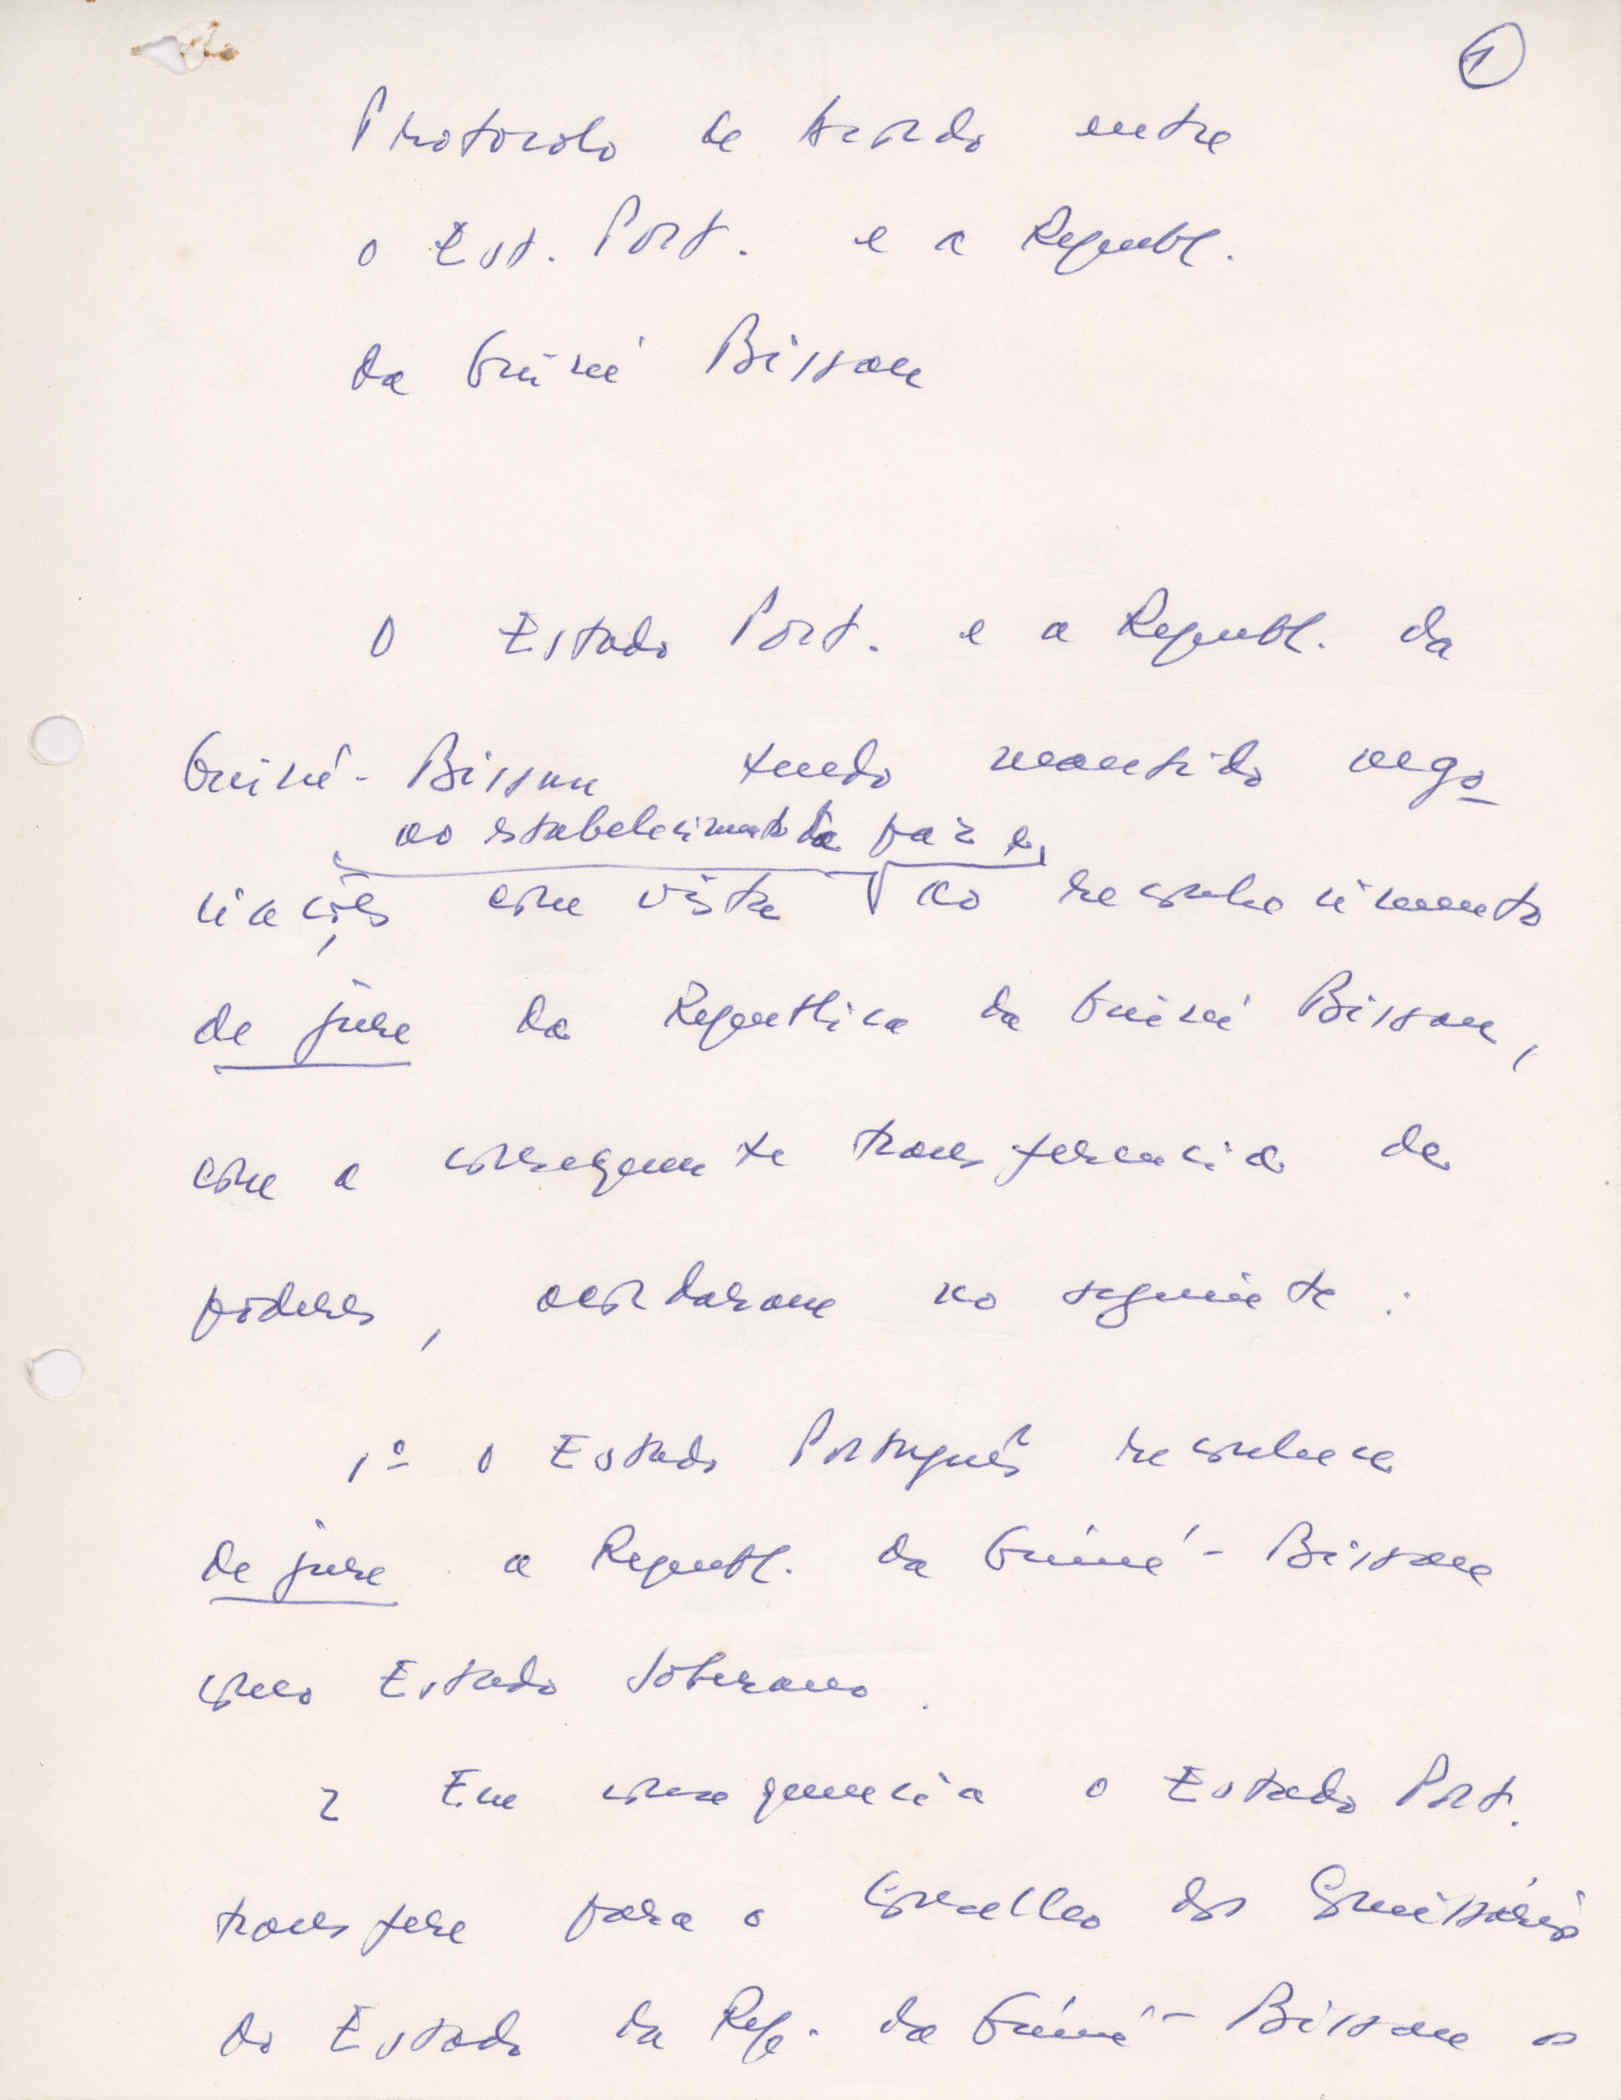 1
Protocolo de Acordo entre
o Est. Port. e a Republ.
da Guiné Bissau
O Estado Port. e a Republ. da
Guiné-Bissau tendo mantido nego
ao estabelecimento da paz e,
ciações, com vista ao reconhecimento
de jure da Republica da Guiné Bissau,
com a consequente transferencia de
poderes, acordaram no seguinte:
1º O Estado Português reconhece
de jure a Republ. da Guiné-Bissau
como Estado Soberano.
2 Em consequencia o Estado Port.
transfere para o Conselho dos Comissários
do Estado da Rep. da Guiné-Bissau os